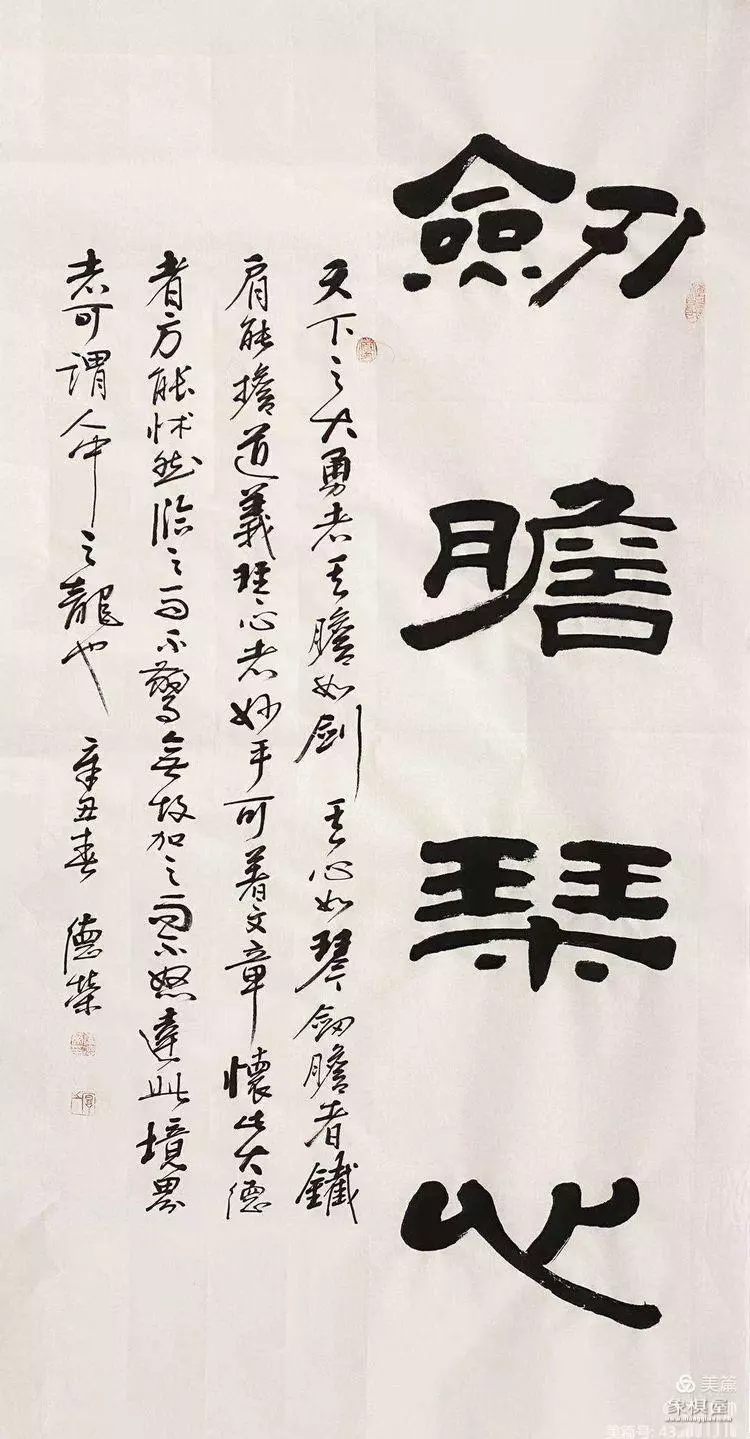 劒膽琹心
天下之大勇者其膽如劍 其心如琴劒膽者鐵
肩能擔道義琴心者妙手可着文章懷此大德
者方能怵然臨之而不驚無故加之而不怒達此境界
者可謂人中之龍也 辛丑春 德榮
美篇
象棋屋
美篇号: 43